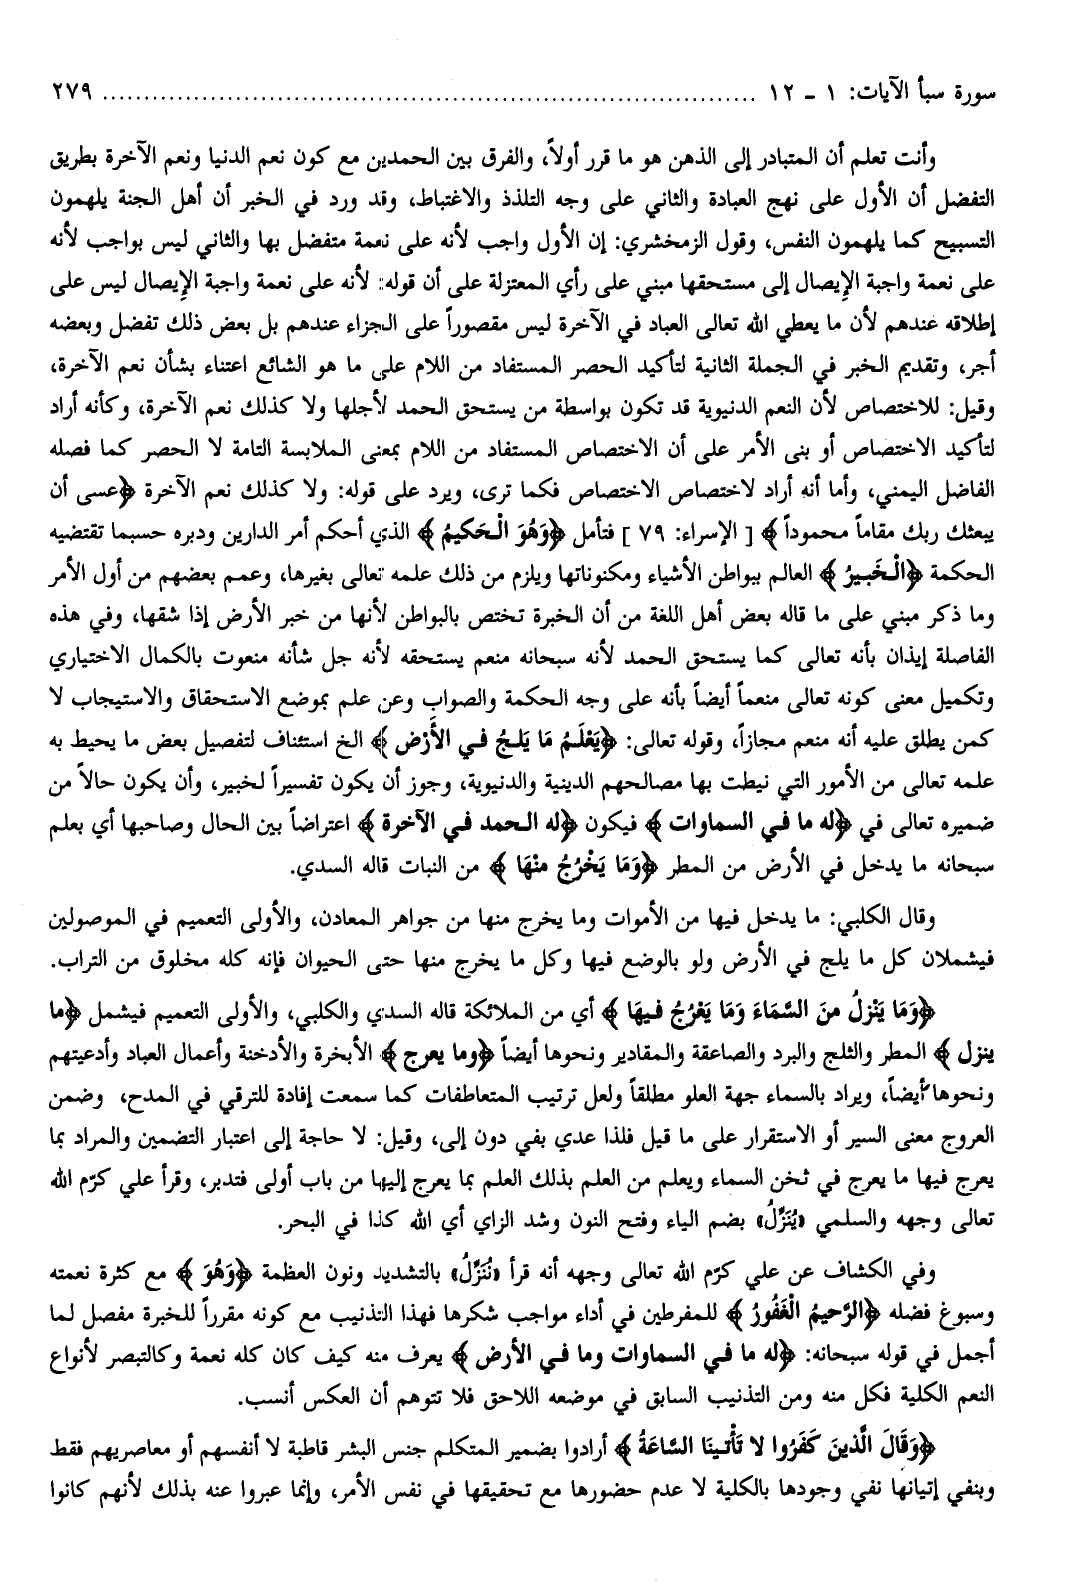 سورة سبأ الآيات: ١ ـ ١٢ ................................................................................ ٢٧٩
وأنت تعلم أن المتبادر إلى الذهن هو ما قرر أولاً، والفرق بين الحمدين مع كون نعم الدنيا ونعم الآخرة بطريق
التفضل أن الأول على نهج العبادة والثاني على وجه التلذذ والاغتباط، وقد ورد في الخبر أن أهل الجنة يلهمون
التسبيح كما يلهمون النفس، وقول الزمخشري: إن الأول واجب لأنه على نعمة متفضل بها والثاني ليس بواجب لأنه
على نعمة واجبة الإيصال إلى مستحقها مبني على رأي المعتزلة على أن قوله: لأنه على نعمة واجبة الإيصال ليس على
إطلاقه عندهم لأن ما يعطي الله تعالى العباد في الآخرة ليس مقصوراً على الجزاء عندهم بل بعض ذلك تفضل وبعضه
أجر، وتقديم الخبر في الجملة الثانية لتأكيد الحصر المستفاد من اللام على ما هو الشائع اعتناء بشأن نعم الآخرة،
وقيل: للاختصاص لأن النعم الدنيوية قد تكون بواسطة من يستحق الحمد لأجلها ولا كذلك نعم الآخرة، وكأنه أراد
لتأكيد الاختصاص أو بنى الأمر على أن الاختصاص المستفاد من اللام بمعنى الملابسة التامة لا الحصر كما فصله
الفاضل اليمني، وأما أنه أراد لاختصاص الاختصاص فكما ترى، ويرد على قوله: ولا كذلك نعم الآخرة ﴿عسى أن
يبعثك ربك مقاماً محموداً﴾ [ الإسراء: ٧٩ ] فتأمل ﴿وَهُوَ الْحَكيمُ﴾ الذي أحكم أمر الدارين ودبره حسبما تقتضيه
الحكمة ﴿الْخَبيرُ﴾ العالم ببواطن الأشياء ومكنوناتها ويلزم من ذلك علمه تعالى بغيرها، وعمم بعضهم من أول الأمر
وما ذكر مبني على ما قاله بعض أهل اللغة من أن الخبرة تختص بالبواطن لأنها من خبر الأرض إذا شقها، وفي هذه
الفاصلة إيذان بأنه تعالى كما يستحق الحمد لأنه سبحانه منعم يستحقه لأنه جل شأنه منعوت بالكمال الاختياري
وتكميل معنى كونه تعالى منعماً أيضاً بأنه على وجه الحكمة والصواب وعن علم بموضع الاستحقاق والاستيجاب لا
كمن يطلق عليه أنه منعم مجازاً، وقوله تعالى: ﴿يَعْلَمُ مَا يَلجُ في الأَرْض﴾ الخ استئناف لتفصيل بعض ما يحيط به
علمه تعالى من الأمور التي نيطت بها مصالحهم الدينية والدنيوية، وجوز أن يكون تفسيراً لخبير، وأن يكون حالاً من
ضميره تعالى في ﴿له ما في السماوات﴾ فيكون ﴿له الحمد في الآخرة﴾ اعتراضاً بين الحال وصاحبها أي بعلم
سبحانه ما يدخل في الأرض من المطر ﴿وَمَا يَخْرُجُ منْهَا﴾ من النبات قاله السدي.
وقال الكلبي: ما يدخل فيها من الأموات وما يخرج منها من جواهر المعادن، والأولى التعميم في الموصولين
فيشملان كل ما يلج في الأرض ولو بالوضع فيها وكل ما يخرج منها حتى الحيوان فإنه كله مخلوق من التراب.
﴿وَمَا يَنْزلُ منَ السَّمَاءَ وَمَا يَعْرُجُ فيهَا﴾ أي من الملائكة قاله السدي والكلبي، والأولى التعميم فيشمل ﴿ما
ينزل﴾ المطر والثلج والبرد والصاعقة والمقادير ونحوها أيضاً ﴿وما يعرج﴾ الأبخرة والأدخنة وأعمال العباد وأدعيتهم
ونحوها أيضاً، ويراد بالسماء جهة العلو مطلقاً ولعل ترتيب المتعاطفات كما سمعت إفادة للترقي في المدح، وضمن
العروج معنى السير أو الاستقرار على ما قيل فلذا عدي بفي دون إلى، وقيل: لا حاجة إلى اعتبار التضمين والمراد بما
يعرج فيها ما يعرج في ثخن السماء ويعلم من العلم بذلك العلم بما يعرج إليها من باب أولى فتدبر، وقرأ علي كرّم الله
تعالى وجهه والسلمي «يُنَزِّلُ» بضم الياء وفتح النون وشد الزاي أي الله كذا في البحر.
وفي الكشاف عن علي كرّم الله تعالى وجهه أنه قرأ «نُنَزِّلُ» بالتشديد ونون العظمة ﴿وَهُوَ﴾ مع كثرة نعمته
وسبوغ فضله ﴿الرَّحيمُ الْغَفُورُ﴾ للمفرطين في أداء مواجب شكرها فهذا التذنيب مع كونه مقرراً للخبرة مفصل لما
أجمل في قوله سبحانه: ﴿له ما في السماوات وما في الأرض﴾ يعرف منه كيف كان كله نعمة وكالتبصر لأنواع
النعم الكلية فكل منه ومن التذنيب السابق في موضعه اللاحق فلا تتوهم أن العكس أنسب.
﴿وَقَالَ الَّذينَ كَفَرُوا لا تَأْتينَا السَّاعَةُ﴾ أرادوا بضمير المتكلم جنس البشر قاطبة لا أنفسهم أو معاصريهم فقط
وبنفي إتيانها نفي وجودها بالكلية لا عدم حضورها مع تحقيقها في نفس الأمر، وإنما عبروا عنه بذلك لأنهم كانوا